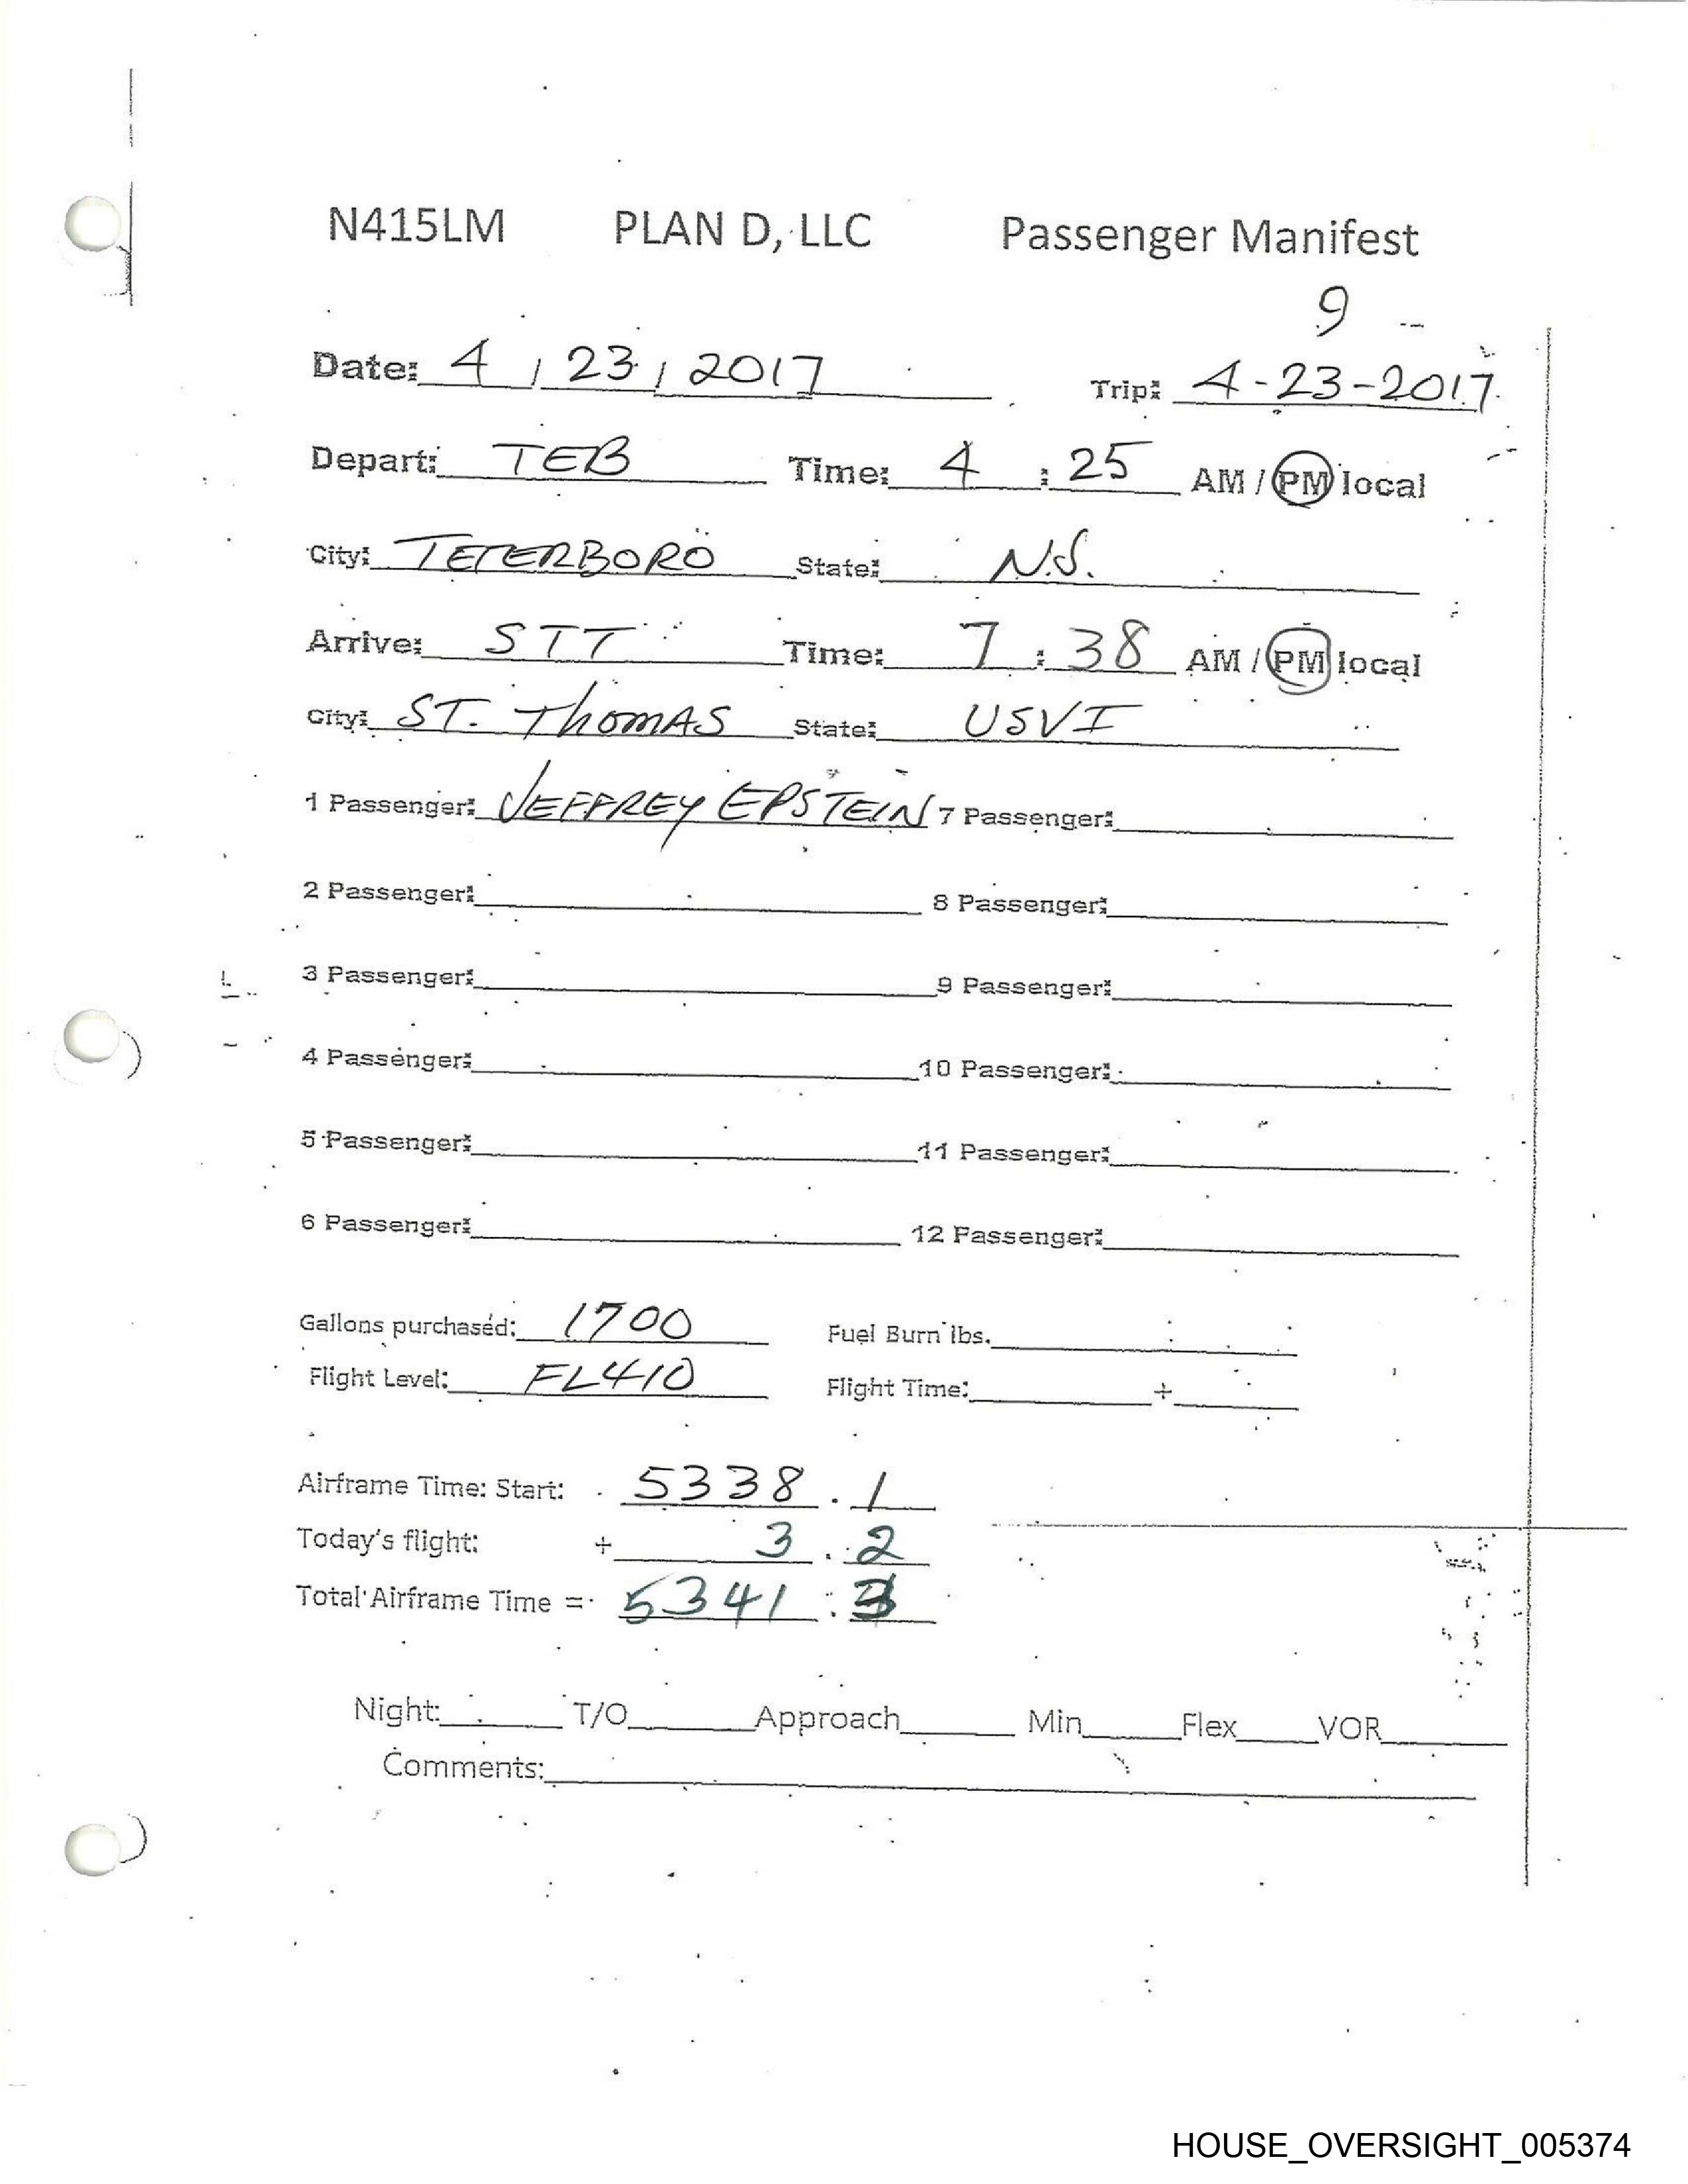 N415LM PLAN D, LLC Passenger Manifest
9
Date: 4 / 23 / 2017 Trip: 4-23-2017
Depart: TEB Time: 4 : 25 AM / PM local
City: TETERBORO State: N.J.
Arrive: STT Time: 7 : 38 AM / PM local
City: ST. THOMAS State: USVI
1 Passenger: JEFFREY EPSTEIN 7 Passenger:
2 Passenger: 8 Passenger:
3 Passenger: 9 Passenger:
4 Passenger: 10 Passenger:
5 Passenger: 11 Passenger:
6 Passenger: 12 Passenger:
Gallons purchased: 1700 Fuel Burn lbs.
Flight Level: FL410 Flight Time: +
Airframe Time: Start: 5338 . 1
Today's flight: + 3 . 2
Total Airframe Time = 5341 . 3
Night: T/O Approach Min Flex VOR
Comments:
HOUSE_OVERSIGHT_005374